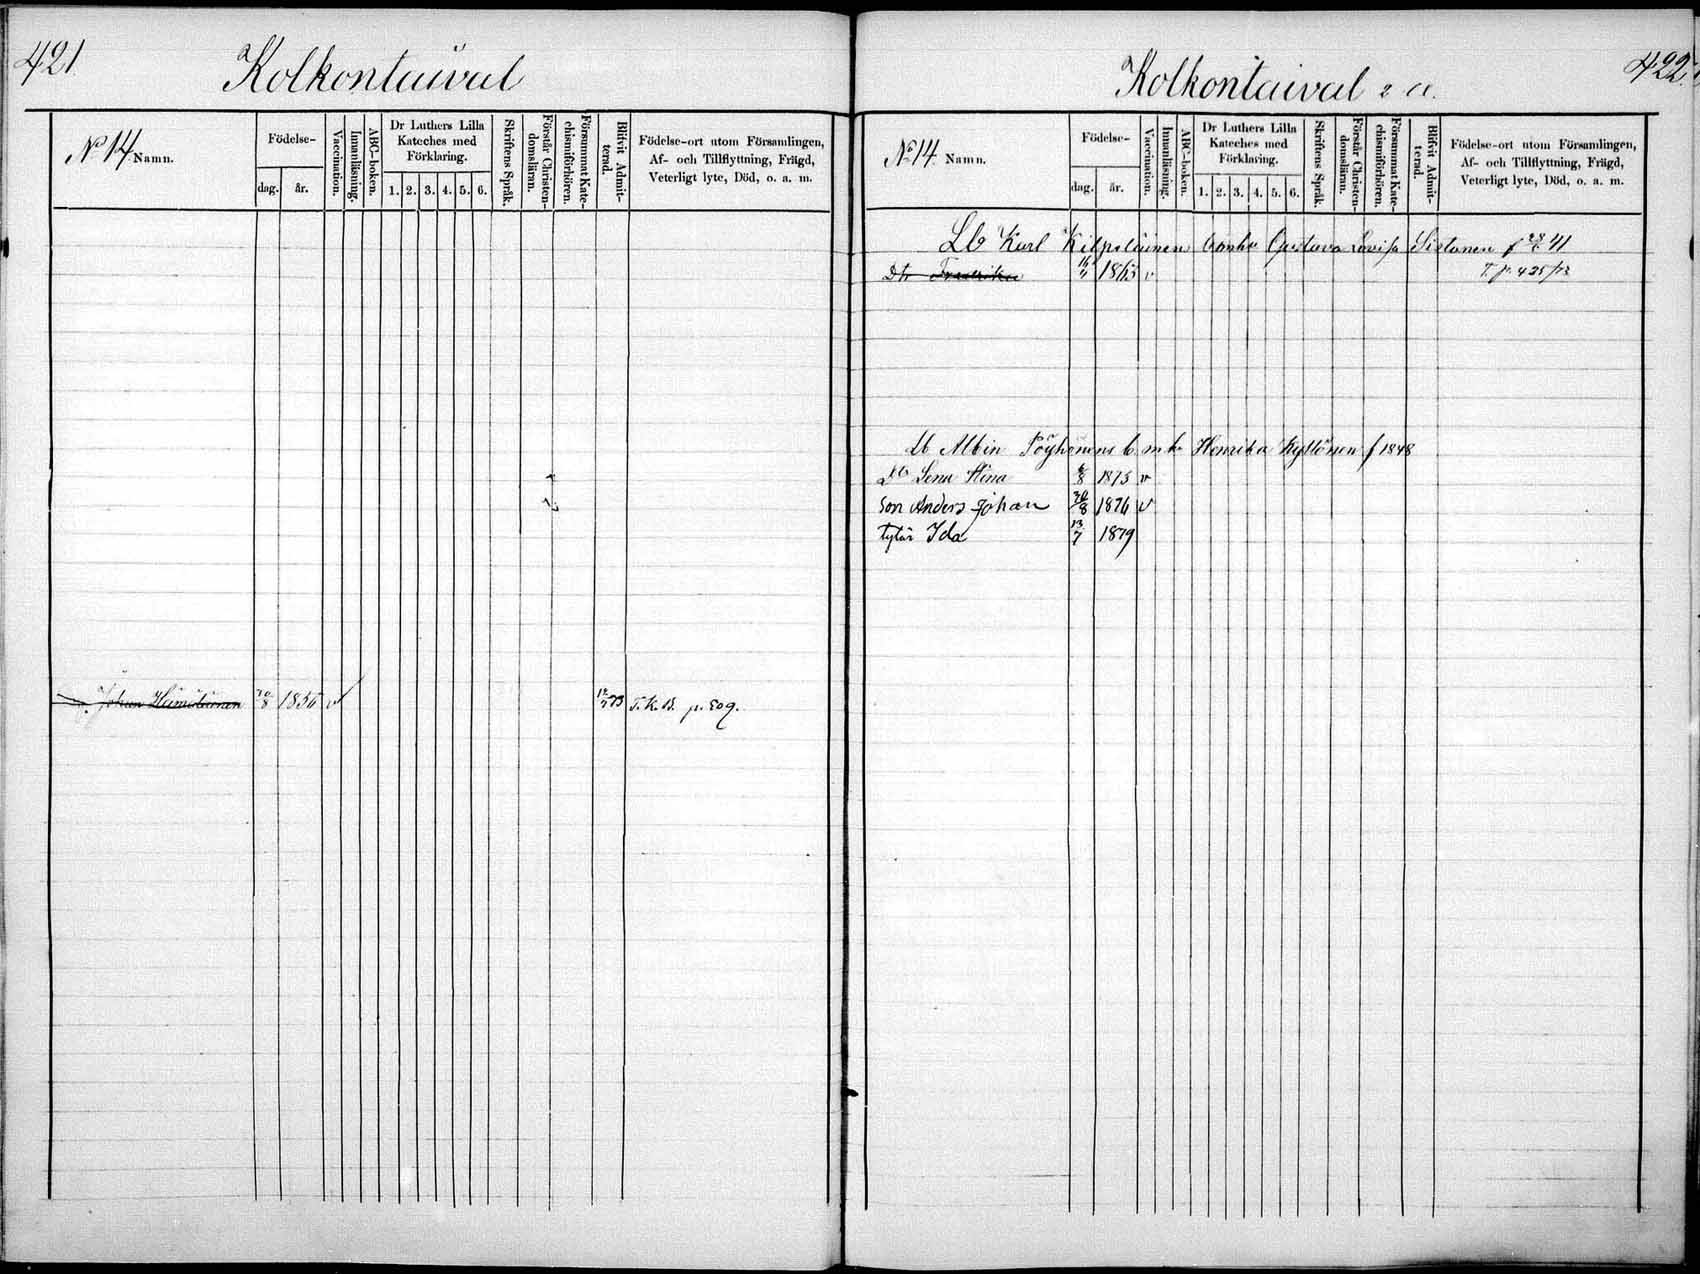 421
Kolkontaival
No 14 Namn.
Födelse-
dag. år.
Vaccination.
Innanläsning.
ABC-boken.
Dr Luthers Lilla
Kateches med
Förklaring.
1. 2. 3. 4. 5. 6.
Skriftens Språk.
Förstår Christen-
domsläran.
Försummat Kate-
chismiförhören.
Blifvit Admit-
terad.
Födelse-ort utom Församlingen,
Af- och Tillflyttning, Frägd,
Veterligt lyte, Död, o. a. m.
Johan 1856 v T.K.B. p. 509.
422
Kolkontaival 2 a.
No 14. Namn.
Födelse-
dag. år.
Vaccination.
Innanläsning.
ABC-boken.
Dr Luthers Lilla
Kateches med
Förklaring.
1. 2. 3. 4. 5. 6.
Skriftens Språk.
Förstår Christen-
domsläran.
Försummat Kate-
chismiförhören.
Blifvit Admit-
terad.
Födelse-ort utom Församlingen,
Af- och Tillflyttning, Frägd,
Veterligt lyte, Död, o. a. m.
Lb Karl Kilpeläinen Gustava Lovisa Sistonen f 41
Dtr Fredrika 1863 v
Lb Albin Pöyhönens b. m. h. Henrika Kyllönen f 1848
Lena Stina 6/8 1875 v
Son Anders Johan 30/8 1876 v
tytär Ida 13/7 1879